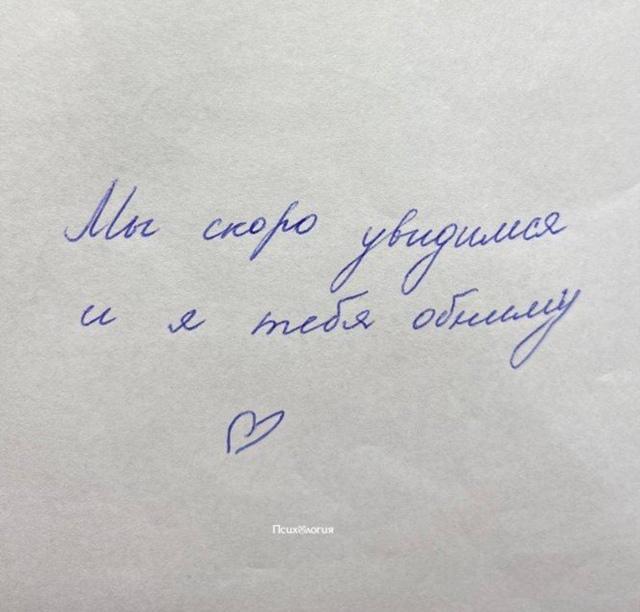 Мы скоро увидимся
и я тебя обниму
Психология